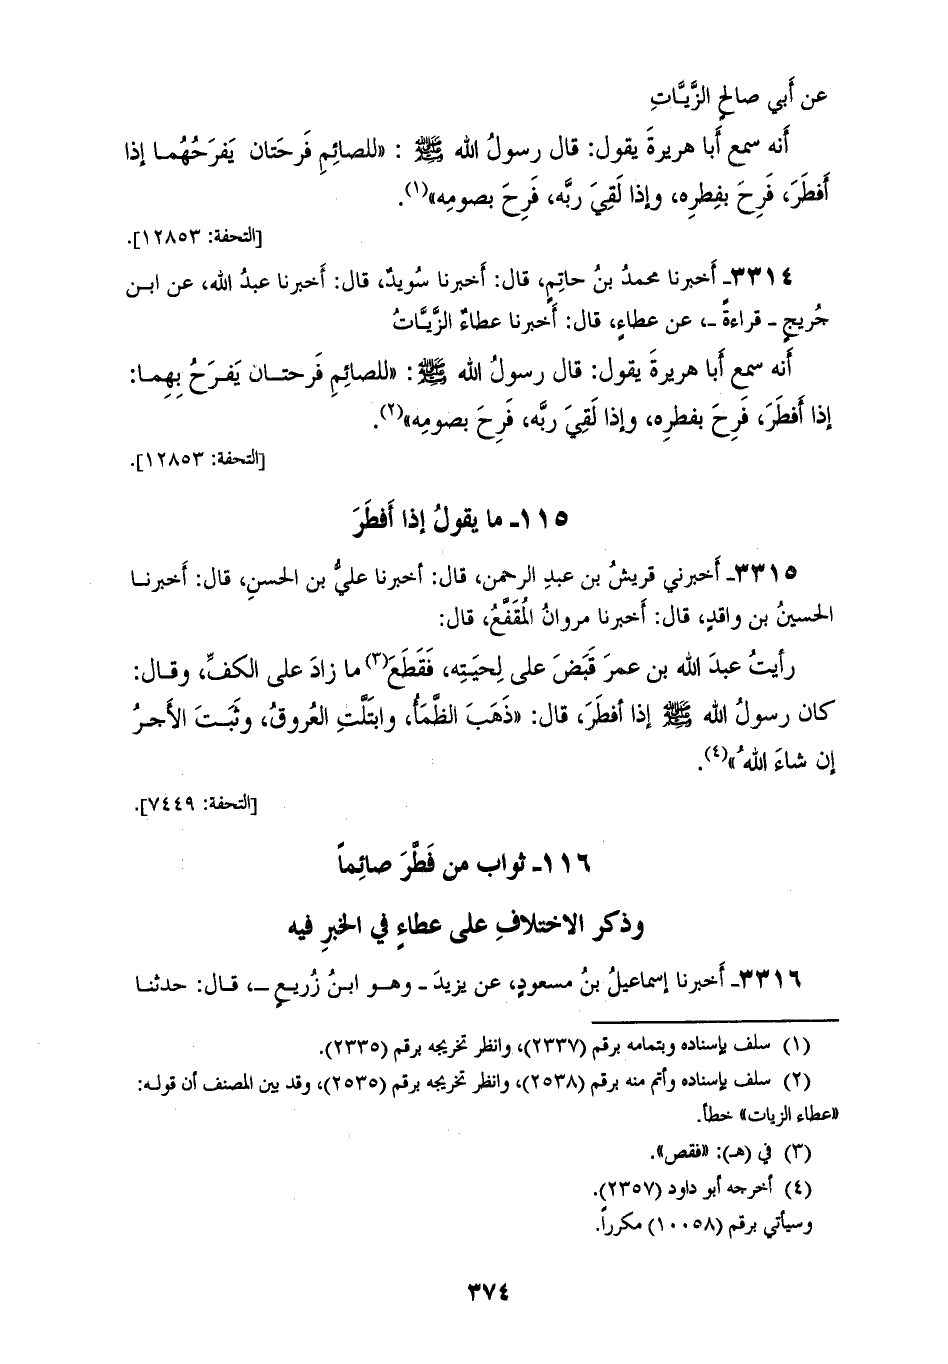 عن أَبي صالحٍ الزَّيَّاتِ
أَنه سمع أَبا هريرةَ يقول: قال رسولُ الله ﷺ : «للصائمِ فَرحَتان يَفرَحُهُما إذا
أَفطَرَ، فَرِحَ بفِطرِه، وإذا لَقِيَ ربَّه، فَرِحَ بصومِه»(١).
[التحفة: ١٢٨٥٣].
٣٣١٤ـ أَخبرنا محمدُ بنُ حاتِمٍ، قال: أَخبرنا سُويدٌ، قال: أَخبرنا عبدُ الله، عن ابن
جُريجٍ ـ قراءةً ـ، عن عطاءٍ، قال: أَخبرنا عطاءٌ الزَّيَّاتُ
أَنه سمع أَبا هريرةَ يقول: قال رسولُ الله ﷺ: «للصائمِ فَرحتان يَفرَحُ بِهِما:
إذا أَفطَرَ، فَرِحَ بفطرِه، وإذا لَقِيَ ربَّه، فَرِحَ بصومِه»(٢).
[التحفة: ١٢٨٥٣].
١١٥ـ ما يقولُ إذا أَفطَرَ
٣٣١٥ـ أَخبرني قريشُ بن عبدِ الرحمن، قال: أخبرنا عليُّ بن الحسنِ، قال: أَخبرنا
الحسينُ بن واقدٍ، قال: أَخبرنا مروانُ المُقَفَّعُ، قال:
رأيتُ عبدَ الله بن عمرَ قَبَضَ على لِحيَتِه، فَقَطَعَ(٣) ما زادَ على الكفِّ، وقال:
كان رسولُ الله ﷺ إذا أفطَرَ، قال: «ذَهَبَ الظَّمَأُ، وابتَلَّتِ العُروقُ، وثَبَتَ الأَجرُ
إن شاءَ اللهُ»(٤).
[التحفة: ٧٤٤٩].
١١٦ـ ثواب من فَطَّرَ صائِماً
وذكر الاختلافِ على عطاءٍ في الخبرِ فيه
٣٣١٦ـ أَخبرنا إسماعيلُ بنُ مسعودٍ، عن يزيدَ ـ وهو ابنُ زُريعٍ ـ، قال: حدثنا
(١) سلف بإسناده وبتمامه برقم (٢٣٣٧)، وانظر تخريجه برقم (٢٣٣٥).
(٢) سلف بإسناده وأتم منه برقم (٢٥٣٨)، وانظر تخريجه برقم (٢٥٣٥)، وقد بين المصنف أن قوله:
«عطاء الزيات» خطأ.
(٣) في (هـ): «فقص».
(٤) أخرجه أبو داود (٢٣٥٧).
وسيأتي برقم (١٠٠٥٨) مكرراً.
٣٧٤